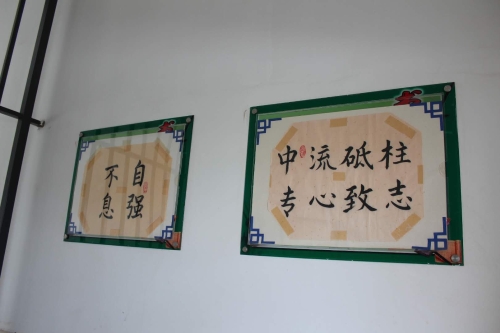 自强
不息
中流砥柱
专心致志